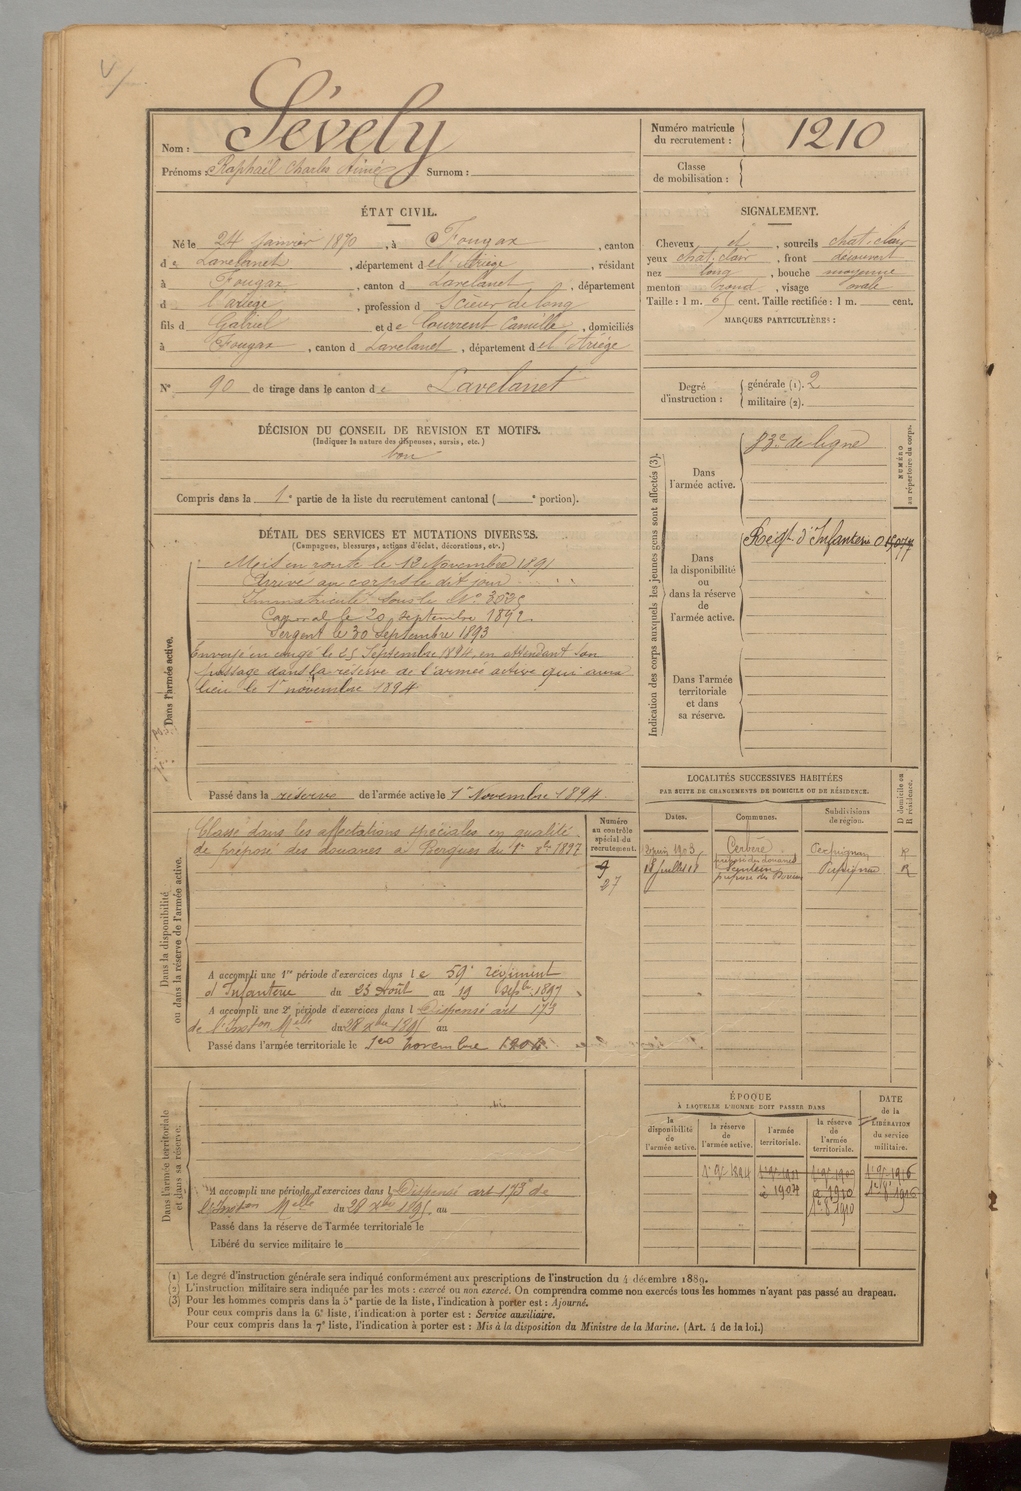 Nom : Sévely
Prénoms : Raphaël Charles Aimé Surnom :
Numéro matricule du recrutement : 1210
Classe de mobilisation :
ÉTAT CIVIL.
Né le 24 Janvier 1870, à Fougax, canton
de Lavelanet, département de l'Ariège, résidant
à Fougax, canton de Lavelanet, département
d l'ariège, profession de Scieur de long
fils d Gabriel et de Courrent Camille, domiciliés
à Fougax, canton d Lavelanet, département de l'Ariège
N° 90 de tirage dans le canton de Lavelanet
SIGNALEMENT.
Cheveux et, sourcils chat. clair
yeux chat. clair, front découvert
nez long, bouche moyenne
menton rond, visage ovale
Taille : 1 m. 65 cent. Taille rectifiée : 1 m. cent.
MARQUES PARTICULIÈRES :
Degré d'instruction : générale (1). 2
militaire (2).
DÉCISION DU CONSEIL DE REVISION ET MOTIFS.
(Indiquer la nature des dispenses, sursis, etc.)
bon
Compris dans la 1e partie de la liste du recrutement cantonal ( e portion).
Indication des corps auxquels les jeunes gens sont affectés (3).
NUMÉRO au répertoire du corps.
Dans l'armée active.
83e de ligne
Dans la disponibilité ou dans la réserve de l'armée active.
Régt. d'Infanterie
Dans l'armée territoriale et dans sa réserve.
DÉTAIL DES SERVICES ET MUTATIONS DIVERSES.
(Campagnes, blessures, actions d'éclat, décorations, etc.)
Dans l'armée active.
Mis en route le 12 Novembre 1891
Arrivé au corps le dit jour
Immatriculé sous le N° 3535
Caporal le 20 septembre 1892.
Sergent le 30 septembre 1893
Envoyé en congé le 25 Septembre 1894, en attendant son
passage dans la réserve de l'armée active qui aura
lieu le 1er novembre 1894
Passé dans la réserve de l'armée active le 1er Novembre 1894
LOCALITÉS SUCCESSIVES HABITÉES
PAR SUITE DE CHANGEMENTS DE DOMICILE OU DE RÉSIDENCE.
Dates. Communes. Subdivisions de région. D domicile ou R résidence.
juin 1903 Cerbère Perpignan R
préposé des douanes
Juillet Perpignan R
préposé des
Dans la disponibilité ou dans la réserve de l'armée active.
Numéro au contrôle spécial du recrutement.
Classé dans les affectations spéciales en qualité
de préposé des douanes à Bergues du 1er Xbre 1897
27
A accompli une 1re période d'exercices dans le 59e régiment
d'Infanterie du 23 Août au 19 Septbre 1897
A accompli une 2e période d'exercices dans l Dispensé art 173
de l'Instion Melle du 28 Xbre 1895 au
Passé dans l'armée territoriale le 1er novembre 1904
Dans l'armée territoriale et dans sa réserve.
A accompli une période d'exercices dans l Dispensé art 173 de
l'Instion Melle du 28 Xbre 1895, au
Passé dans la réserve de l'armée territoriale le
Libéré du service militaire le
ÉPOQUE
À LAQUELLE L'HOMME DOIT PASSER DANS
la disponibilité de l'armée active. la réserve de l'armée active. l'armée territoriale. la réserve de l'armée territoriale.
DATE de la LIBÉRATION du service militaire.
1er 9bre 1894 1er 9bre 1916
1904 1910 1916
1910
(1) Le degré d'instruction générale sera indiqué conformément aux prescriptions de l'instruction du 4 décembre 1889.
(2) L'instruction militaire sera indiquée par les mots : exercé ou non exercé. On comprendra comme non exercés tous les hommes n'ayant pas passé au drapeau.
(3) Pour les hommes compris dans la 5e partie de la liste, l'indication à porter est : Ajourné.
Pour ceux compris dans la 6e liste, l'indication à porter est : Service auxiliaire.
Pour ceux compris dans la 7e liste, l'indication à porter est : Mis à la disposition du Ministre de la Marine. (Art. 4 de la loi.)